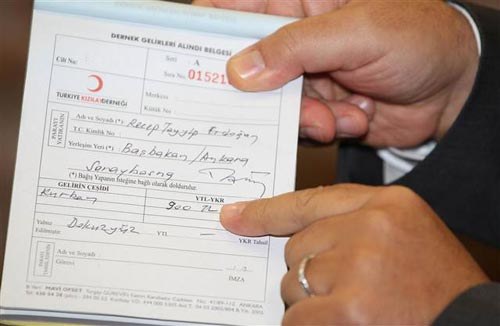 DERNEK GELİRLERİ ALINDI BELGESİ
Cilt No:
Seri : A
Sıra No: 01521
TÜRKİYE KIZILAY DERNEĞİ
Merkezi
Kütük No :
PARAYI YATIRANIN
Adı ve Soyadı (*) Recep Tayyip Erdoğan
T.C. Kimlik No :
Yerleşim Yeri (*) : Başbakan/Ankara
(*) Bağış Yapanın İsteğine bağlı olarak doldurulur.
GELİRİN ÇEŞİDİ YTL-YKR
Kurban 900 TL
Yalnız Dokuzyüz YTL — YKR Tahsil
Edilmiştir.
Adı ve Soyadı :
Görevi :
İMZA